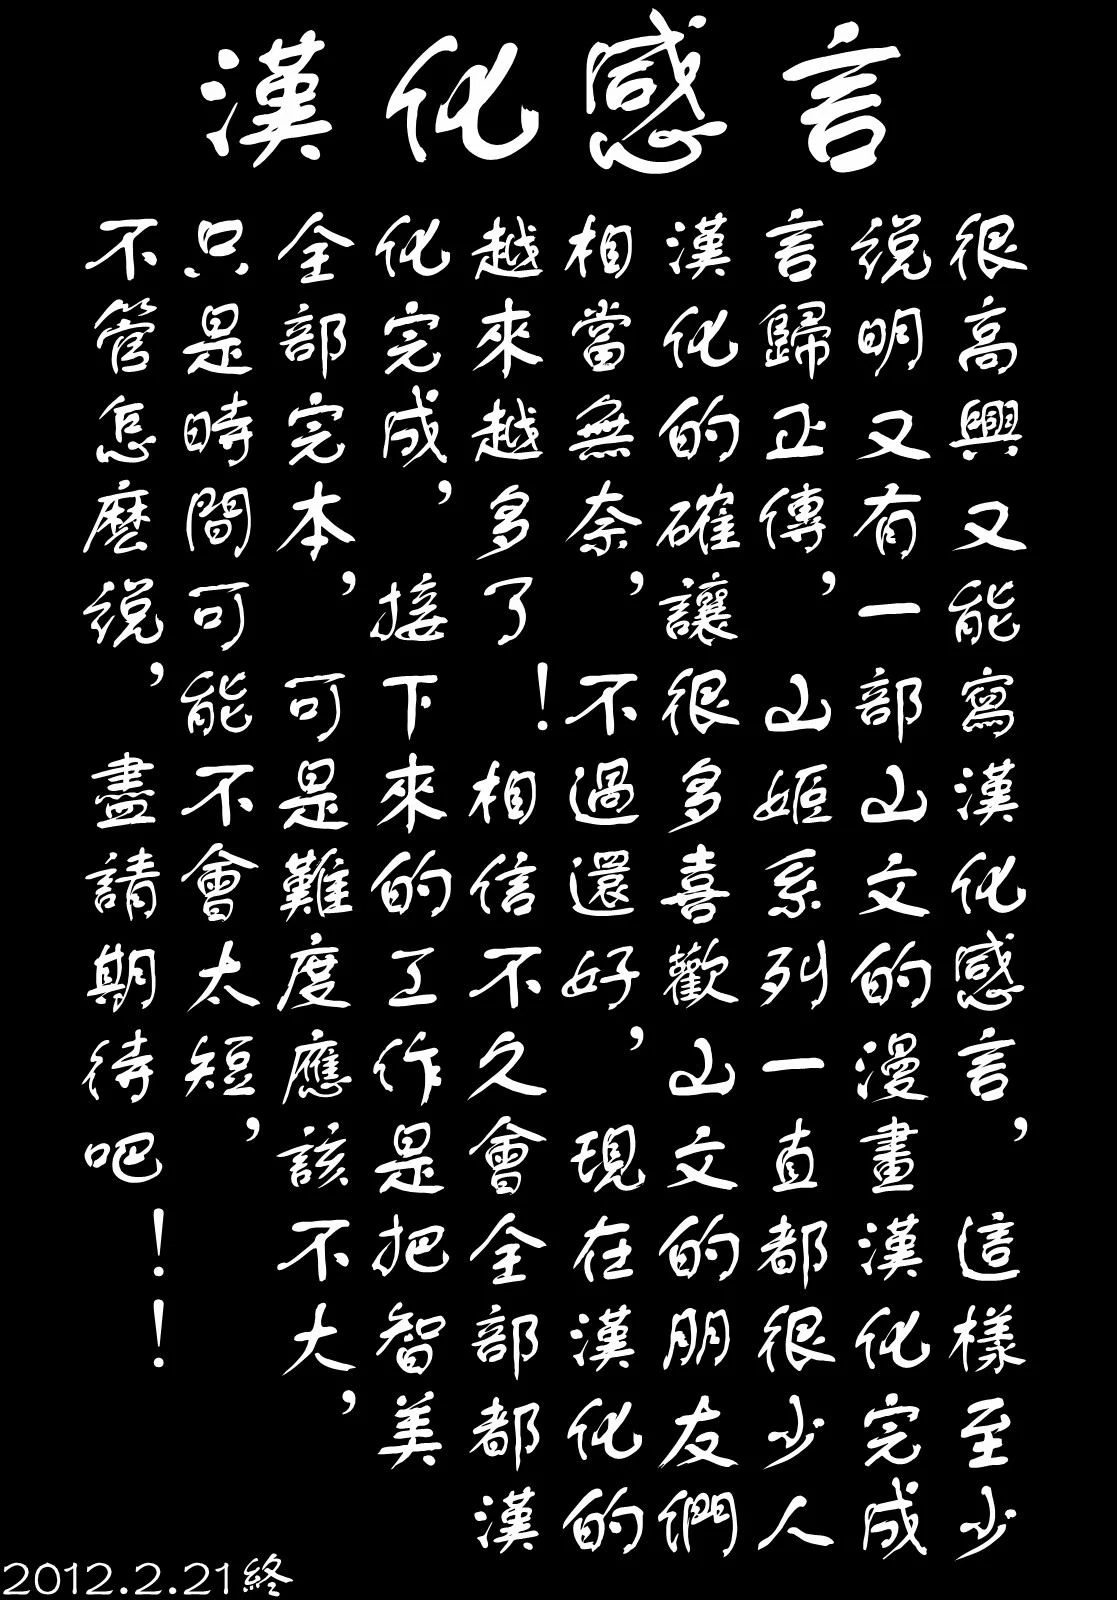 漢化感言
很高興又能寫漢化感言，這樣至少
説明又有一部山文的漫畫漢化完成
言歸正傳，山姫系列一直都很少人
漢化的確讓很多喜歡山文的朋友們
相當無奈，不過還好，現在漢化的
越來越多了！相信不久會全部都漢
化完成，接下來的工作是把智美
全部完本，可是難度應該不大，
只是時間可能不會太短，
不管怎麽説，盡請期待吧！！
2012.2.21終